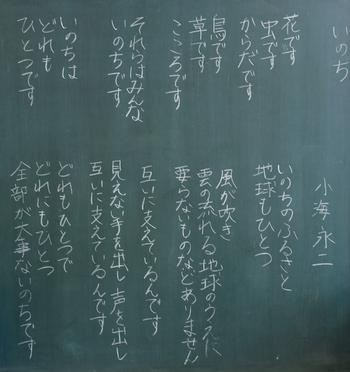 いのち
小海永二
花です
虫です
からだです
鳥です
草です
こころです
それらはみんな
いのちです
いのちは
どれも
ひとつです
いのちのふるさと
地球もひとつ
風が吹き
雲の流れる地球のうえに
要らないものなどありません
互いに支えているんです
見えない手を出し声を出し
互いに支えているんです
どれもひとつで
どれにもひとつ
全部が大事ないのちです